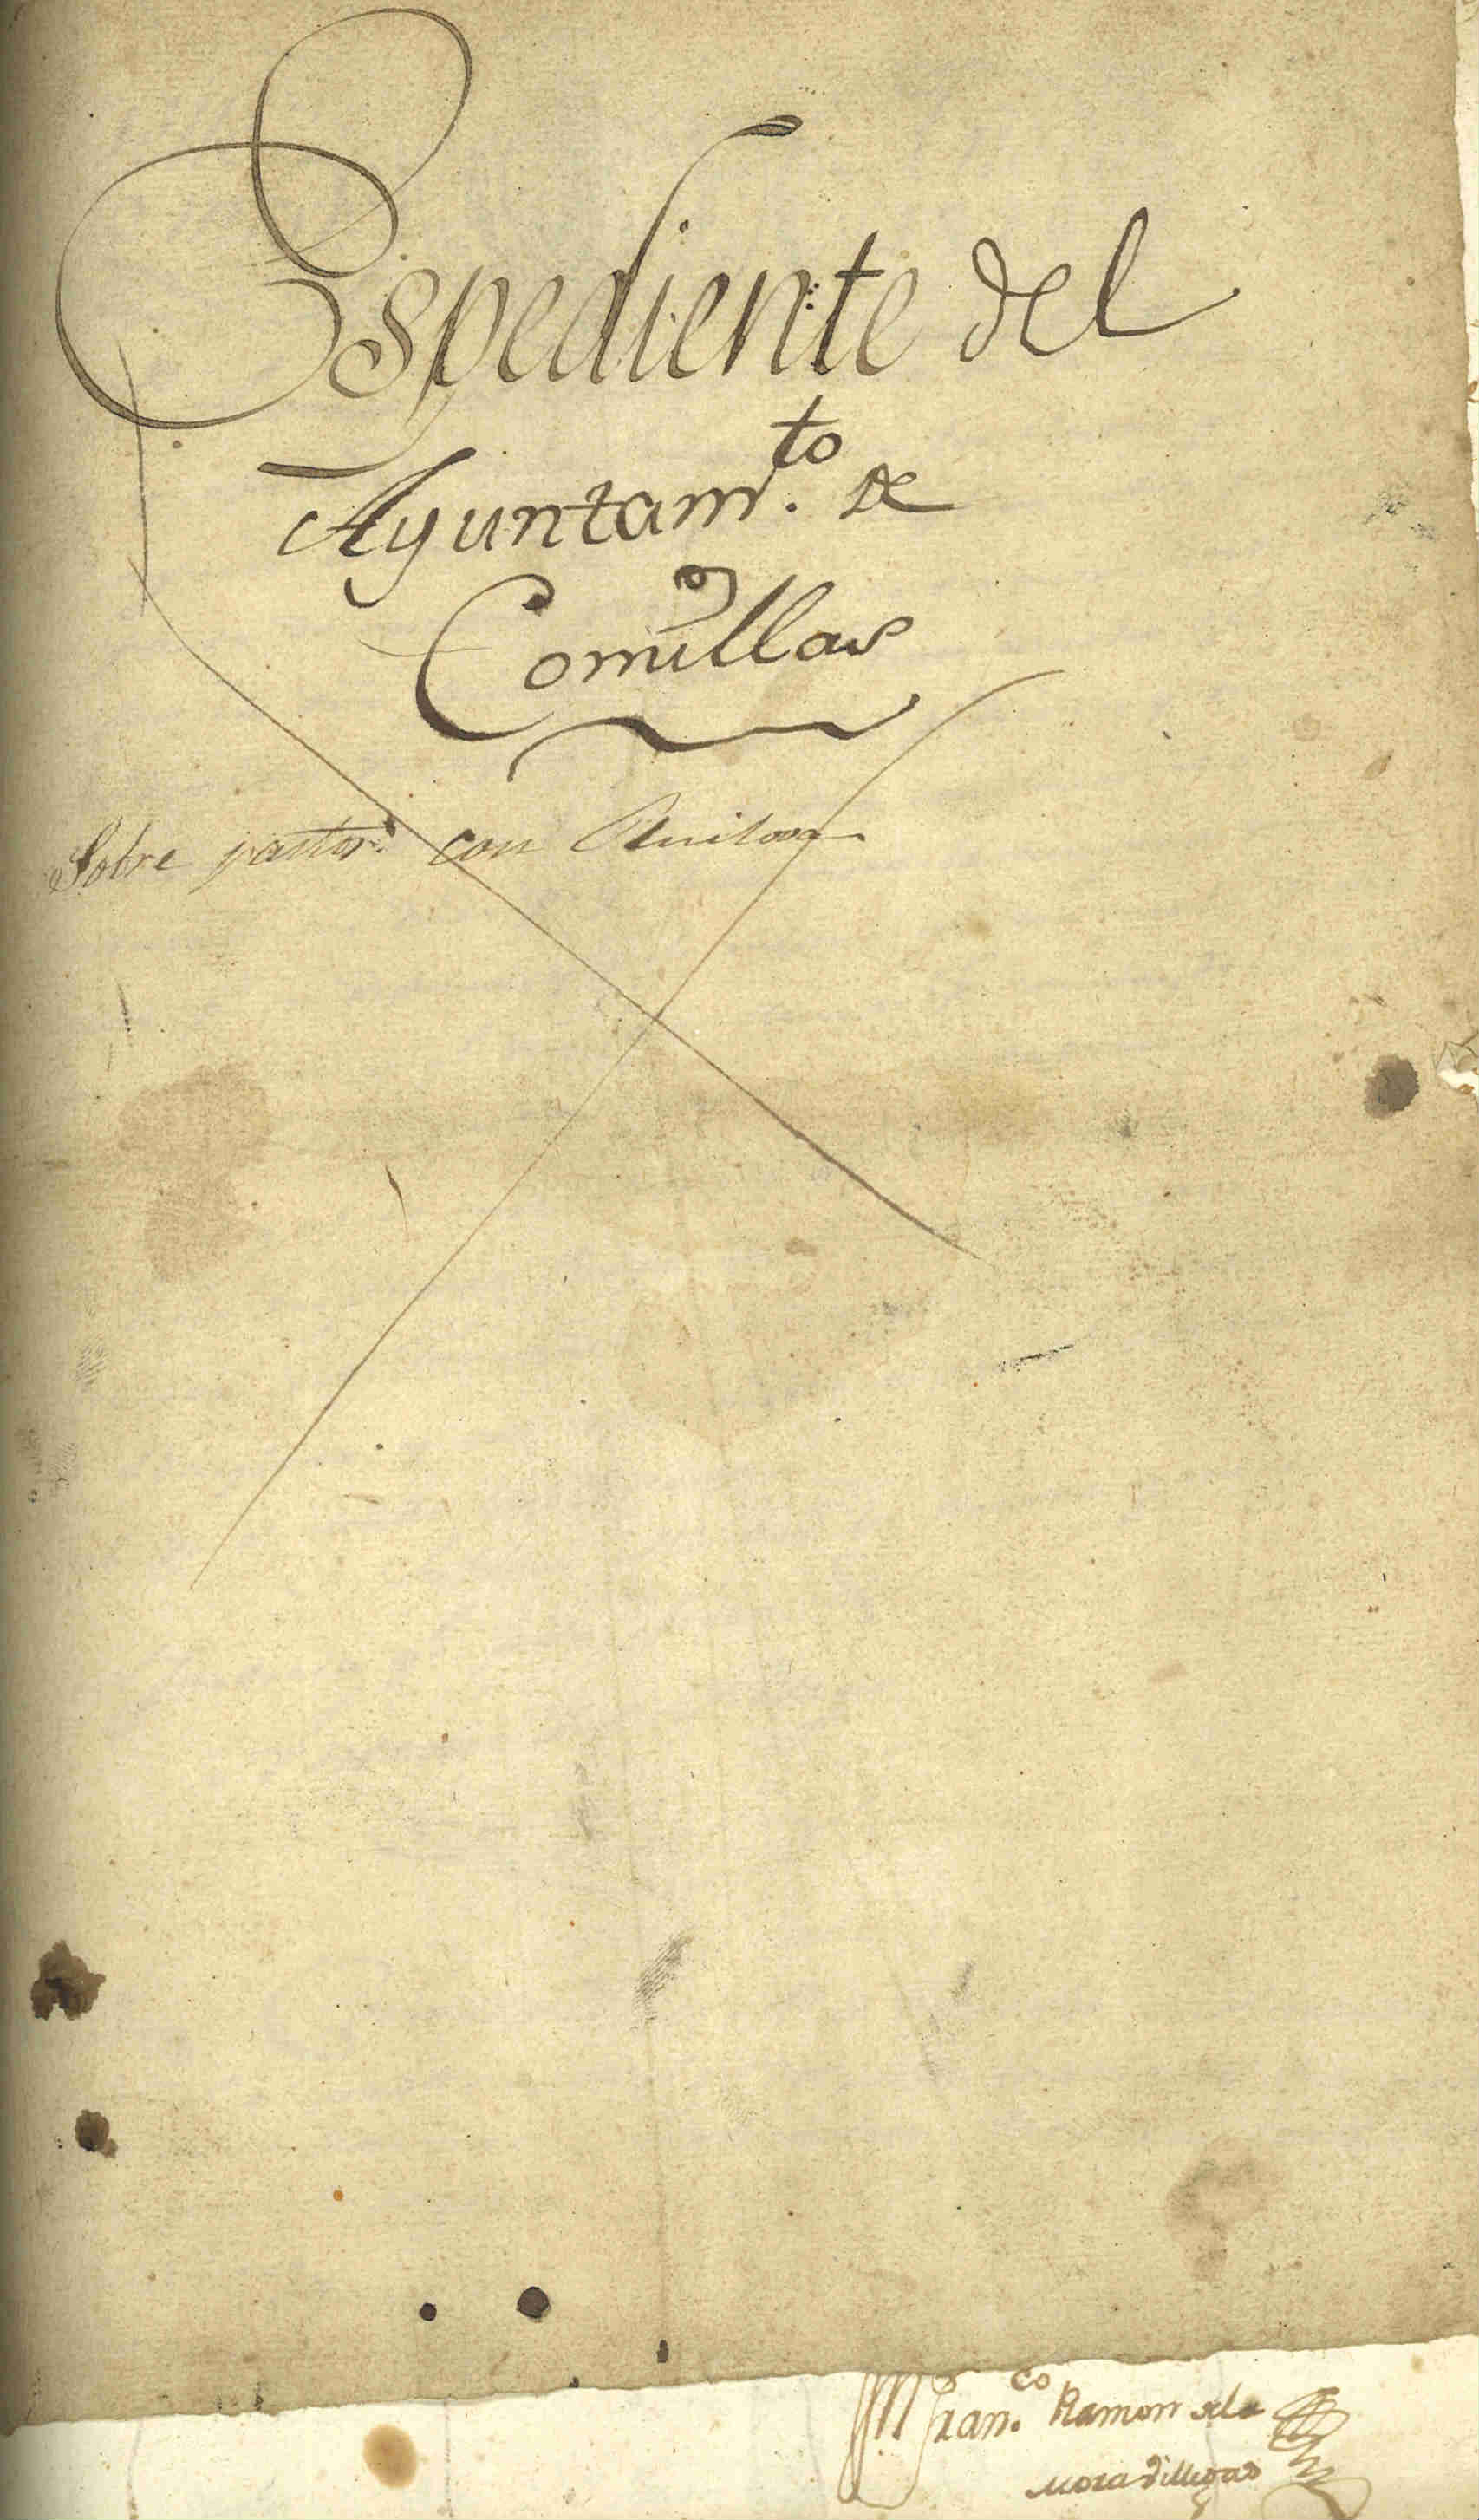 Espediente del
Ayuntam.to de
Comillas
Sobre pastos con Ruiloba
Fran.co Ramon de la
Mora Villegas